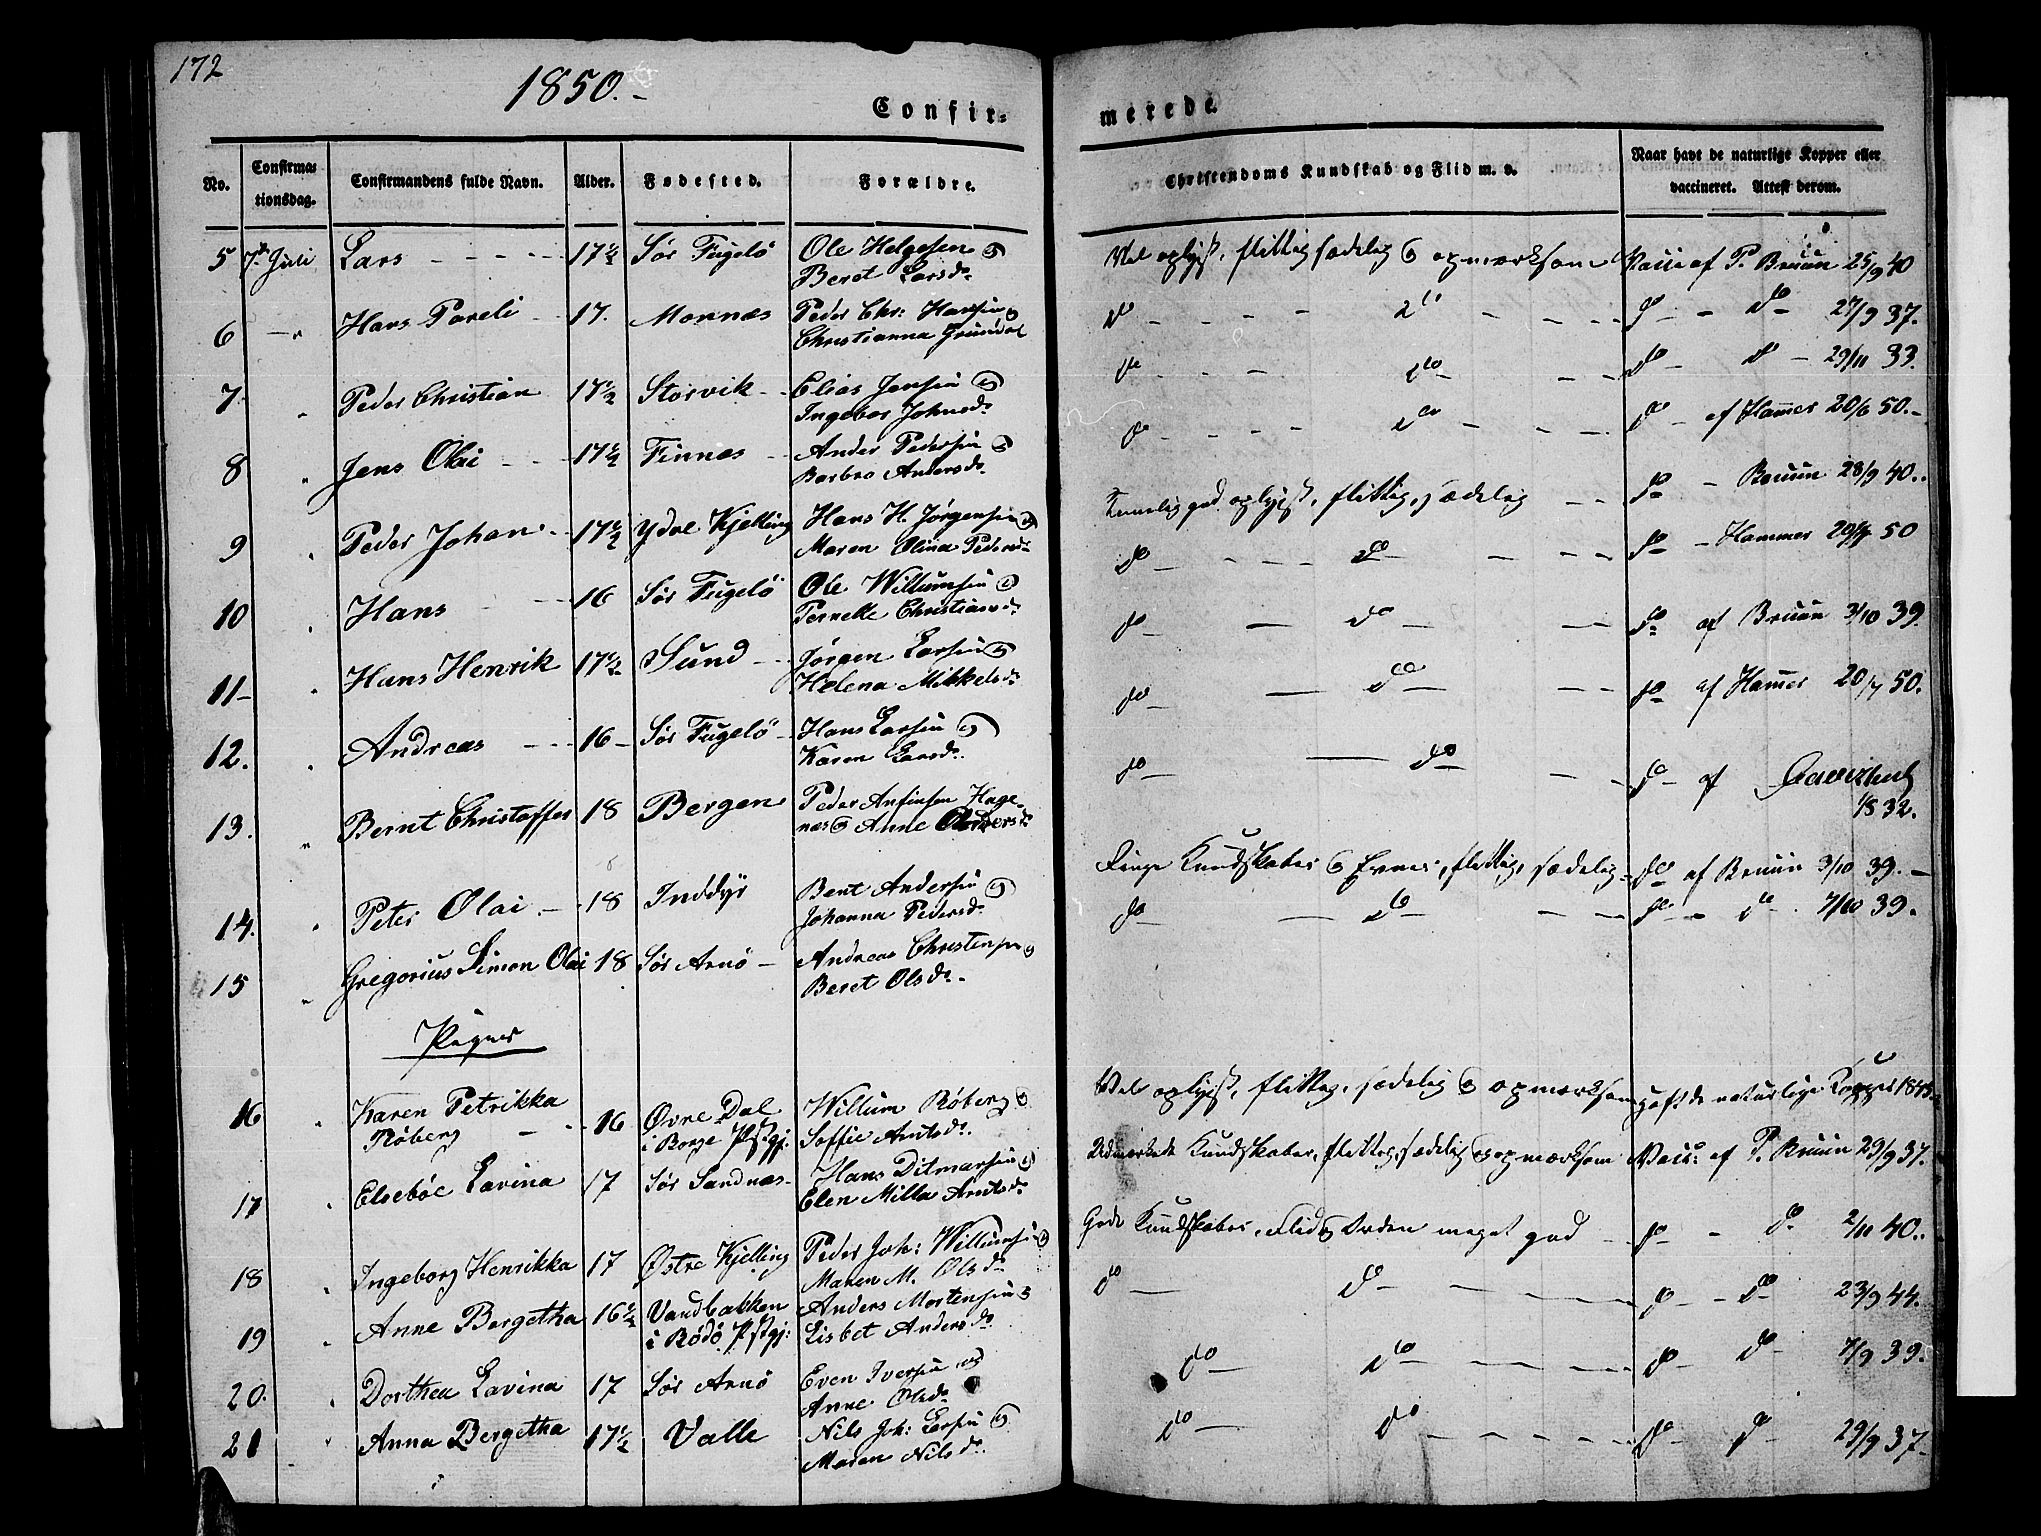 172
1850.-
Confir-
merede
No.
Confirma-
tionsdag.
Confirmandens fulde Navn.
Alder.
Fødested.
Forældre.
Christendoms Kundskab og Flid m. v.
Naar havt de naturlige Kopper eller
vaccineret. Attest derom.
5 7de Juli Lars - - - - - 17½ Sør Fugelö Ole Helgesen og
Beret Larsdr.
Vel oplyst, flittig sædelig & opmærksom Vacc af P. Bruun 25/9 40
6 - " Hans Pareli - 17. Mornæs Peder Chr: Hansen og
Christianna Gründal
do - - - - do - - - - do - - do - 27/9 37.
7. " Peder Christian 17½ Storvik - Elias Jensen og
Ingebor Johnsdr.
do - - - do - - - do - do - 29/11 33.
8 " Jens Olai - - - 17½ Finnæs - Ander Pedersen og
Barbro Andersdr.
do - - - - do - - - do - af Hammer 20/6 50.-
9 " Peder Johan - 17½ Ydre Kjelling Hans H. Jörgensen og
Maren Olina Pedersdr.
Temelig god oplyst, flittig, sædelig - - do - Bruun 28/9 40..
10 " Hans - - - 16 Sör Fugelö Ole Willumsen og
Pernelle Christiansdr.
do - - - - do - - - do - Hammer 50
11- " Hans Henrik 17½ Sund - - Jörgen Larsen og
Helena Mikkelsdr.
do - - do - - - do af Bruun 3/10 39.
12. " Andreas - - - 16 - Sör Fugelö - Hans Larsen og
Karen Larsdr.
do - - do - - - do af Hammer 20/7 50.
13. " Bernt Christoffer 18 Bergen Peder Anfinsen Hage-
næs og Anne Andersdr.
do - - do - - - do - af
1/8 32.
14. " Peter Olai. - - 18 Inddyr Bent Andersen og
Johanna Pedersdr.
Ringe Kundskaber & Evner, flittig, sædelig - do af Bruun 3/10 39. -
15 " Gregorius Simon Olai 18 Sör Arnö - Andreas Christensen og
Beret Olsdr.
do - - do - - - do - do - 7/10 39.
Piger
16 " Karen Petrikka
Röberg - - 16 Övre Dal
i Borge Pstgj: Willum Röberg og
Soffie Arntsdr.
Vel oplyst, flittig, sædelig & opmærksom haft de naturlige Kopper
17 " Elseböe Lavina 17 Sör Sandnæs - Hans Ditmarsen og
Elen Milla Arntsdr.
Udmerkede Kundskaber, flittig, sædelig og opmærksom Vacc: af P. Bruun 29/9 37.
18 " Ingeborg Henrikka 17 Östre Kjelling Peder Joh: Willumsen og
Maren M. Olsdr.
Gode Kundskaber, Flid & Orden meget god - do - do 2/11 40..
19 " Anne Bergetha 16½ Vandbakken
i Rödö Pstgj: Anders Mortensen og
Lisbet Andersdr.
do - do - - - - - do - - do - 23/9 44.
20. " Dorthea Lavina 17 Sör Arnö Even Iversen og
Anne Olsdr.
do - do - - - - do - do - 7/9 39.
21 " Anna Bergetha 17½ Valle Nils Joh: Larsen og
Maren Nilsdr.
do - do - - - - do - do - 29/9 37-